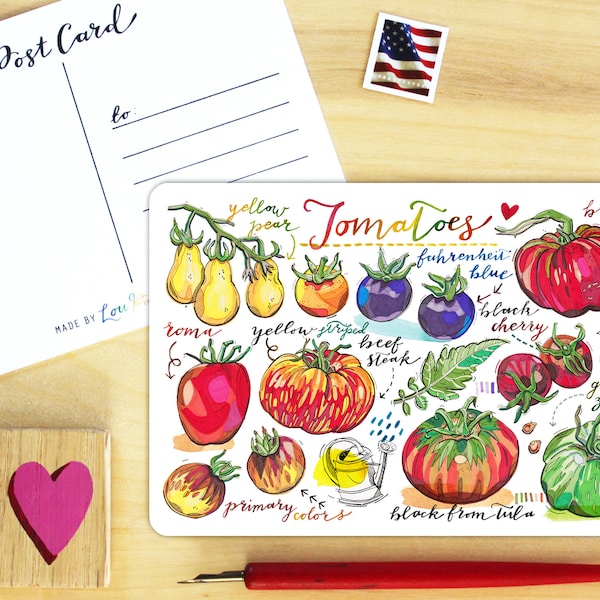 Post Card
to:
MADE BY
Tomatoes
yellow
pear
fahrenheit
blue
black
cherry
roma
yellow striped
beef
steak
primary
colors
black from tula